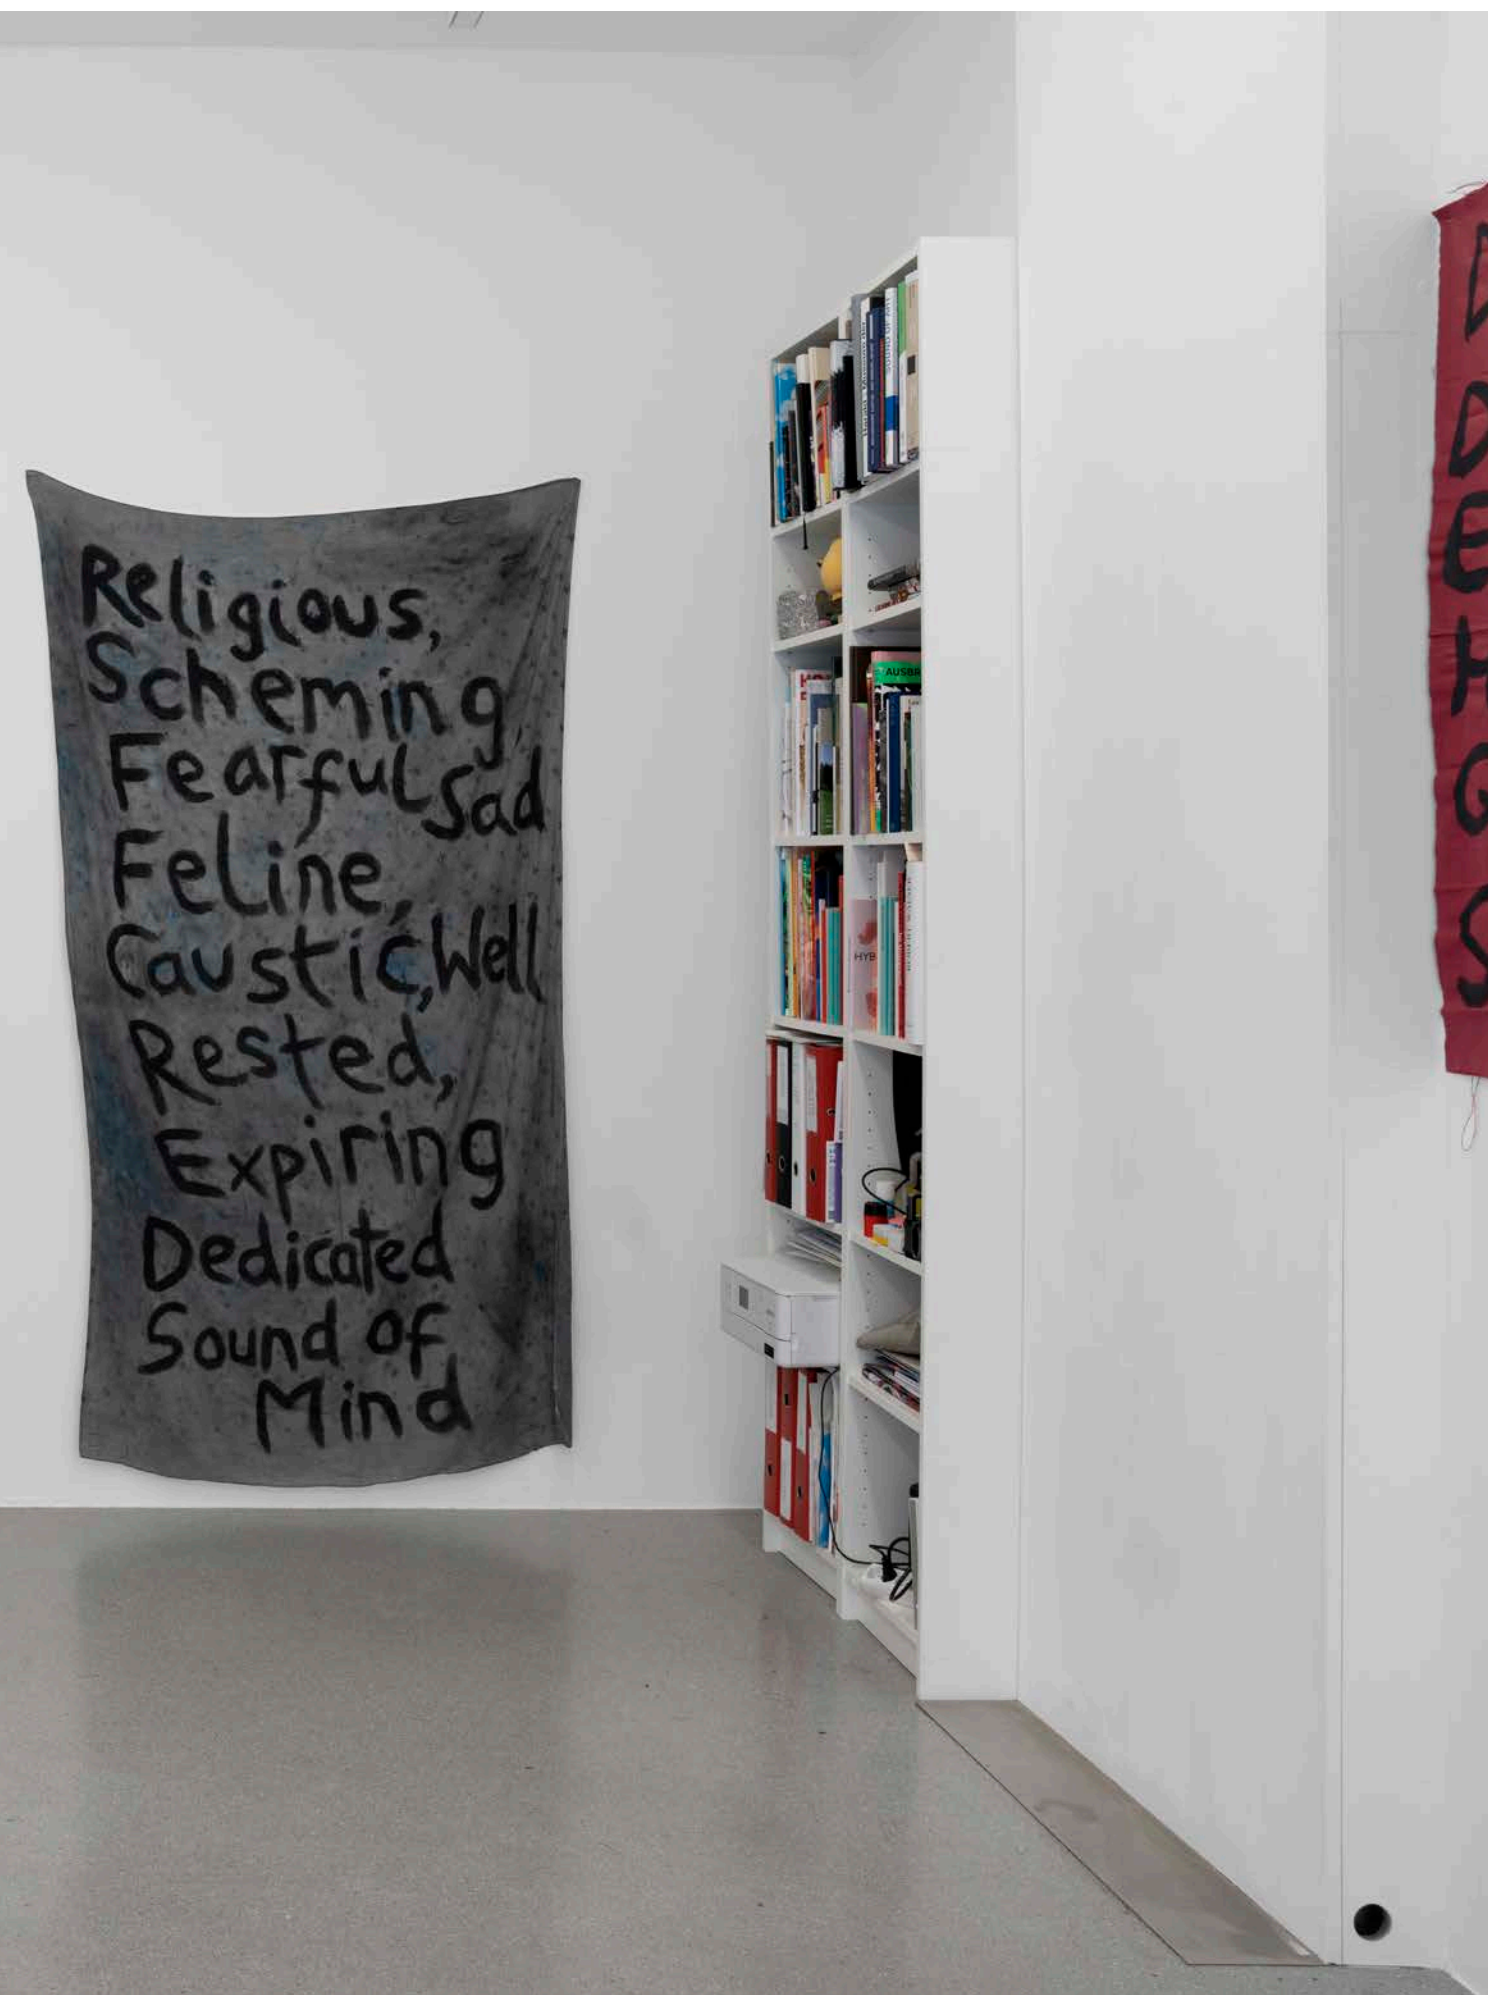 Religious,
Scheming,
Fearful Sad
Feline,
Caustic, Well
Rested,
Expiring
Dedicated
Sound of
Mind
SOUND OF ART
AUSBR
HYB
D
D
E
H
G
S